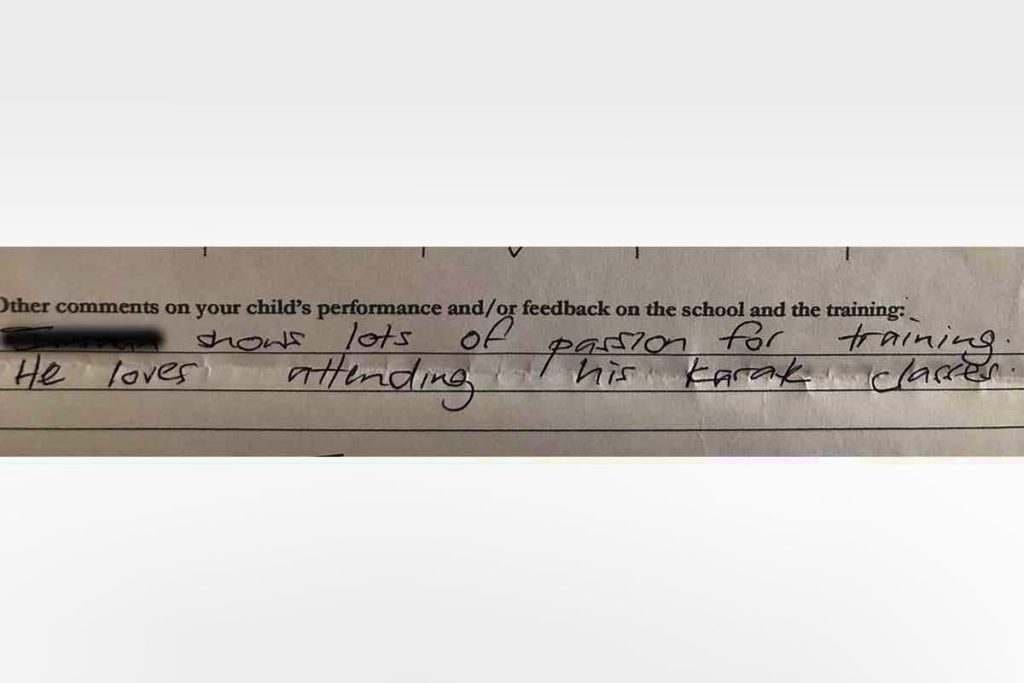 Other comments on your child's performance and/or feedback on the school and the training:
shows lots of passion for training.
He loves attending his karak classes.